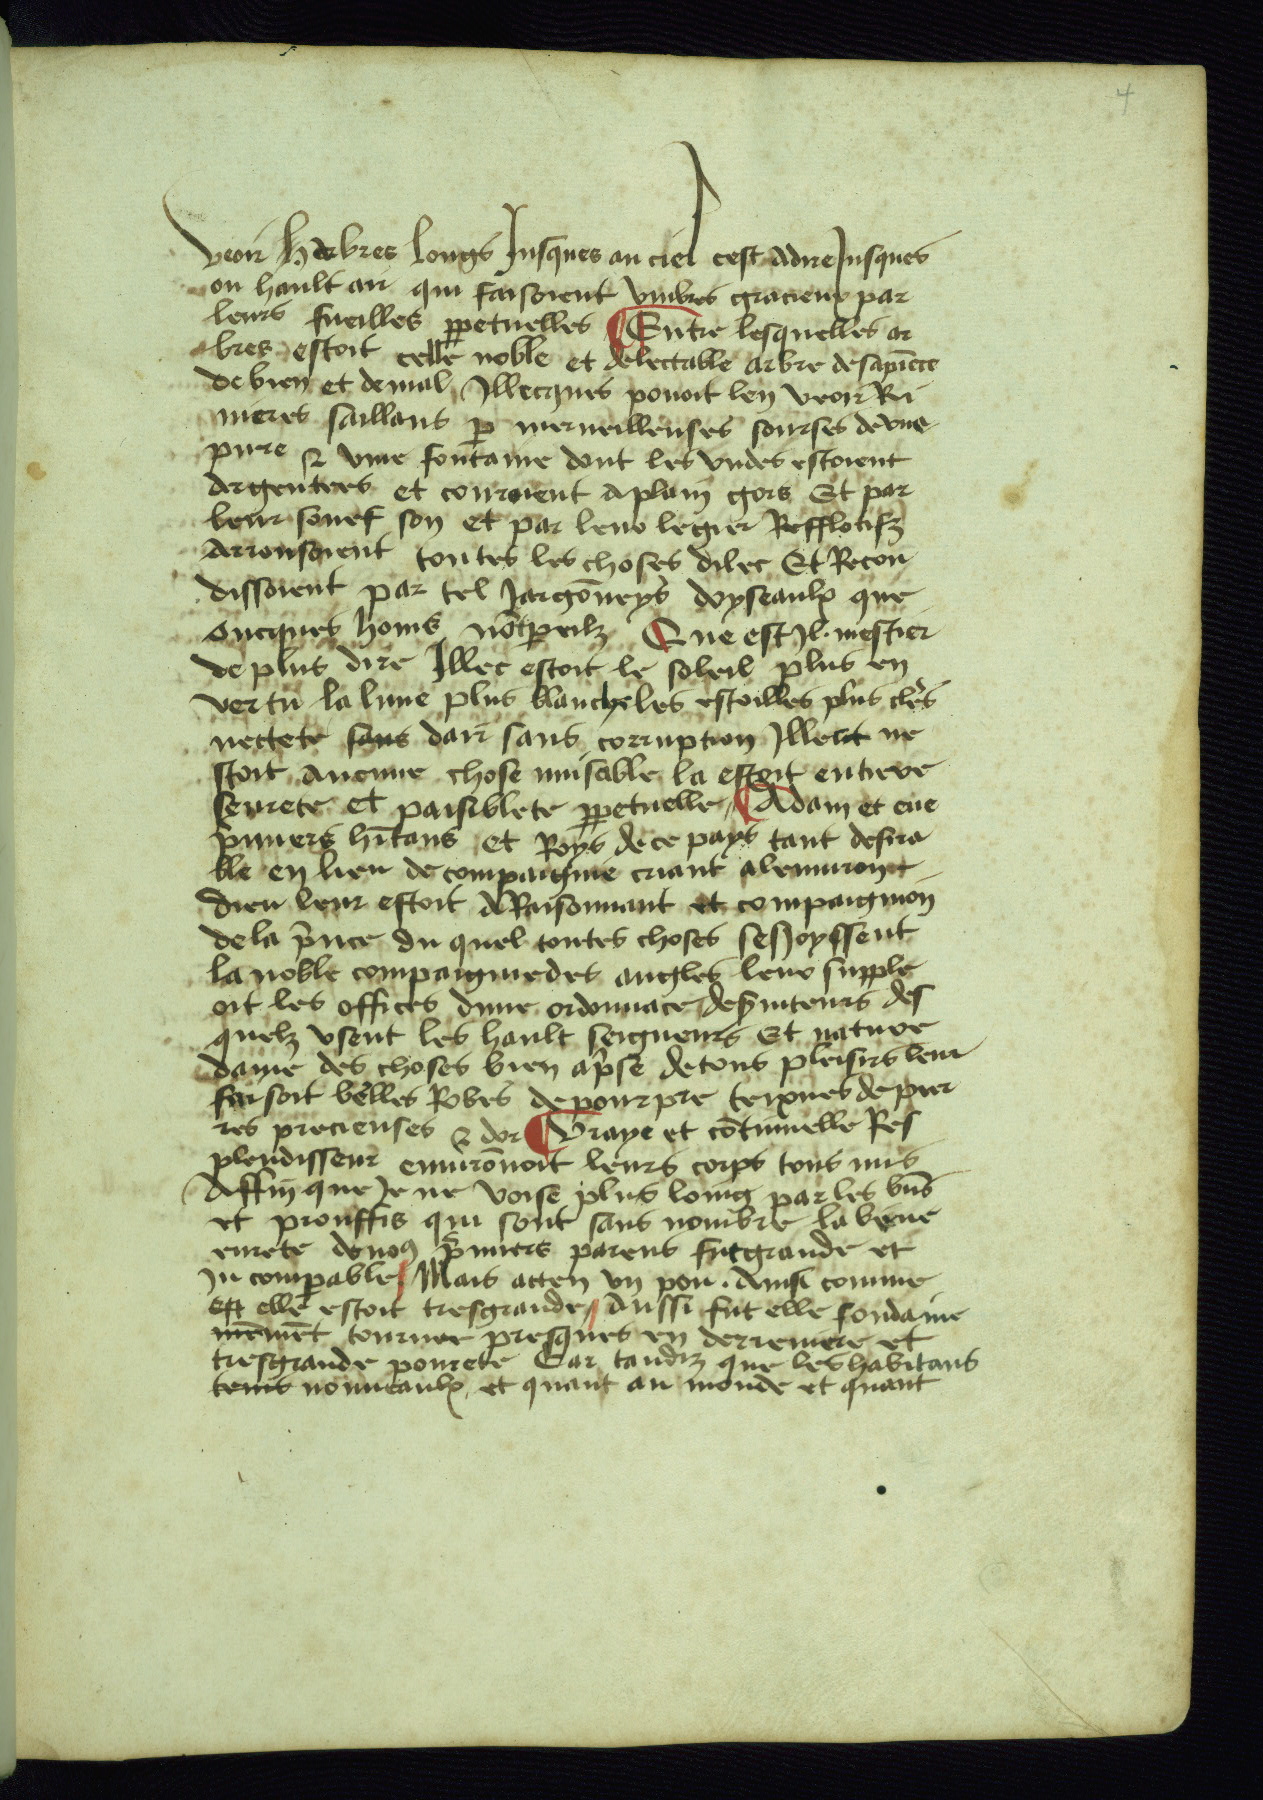 4
veoir herbres longs Jusques au ciel cest adire Jusques
ou hault air qui faisoient vmbres gracieux par
leurs fueilles ꝑpetuelles ¶ Entre lesquelles ar
bres estoit celle noble et delectable arbre de sapiēce
de bien et de mal Illecques pouoit len veoir Ri
uieres saillans ꝑ merueilleuses sourses de vne
pure ⁊ viue fontaine dont les vndes estoient
argentees et couroient aplain gors Et par
leur souef son et par leur legier
arrousoient toutes les choses dilec Et Recon
dissoient par tel Jargōneys doyseaulx que
oncques homs not pareilz Que est Jl mestier
de plus dire Illec estoit le soleil plus en
vertu la lune plus blanche les estoilles plus cleres
nectete dair sans corruption Illec ne
stoit aucune chose nuisable la estoit entiere
seurete et paisiblete ꝑpetuelle ¶ Adam et eue
p̄miers hītans et Roys de ce pays tant desira
ble en lieu de compaignie criant
dieu leur estoit Araisonnant et compaignon
de la p̄nce du quel toutes choses sesJoyssent
la noble compaignie des angles leur supple
oit les offices dune ordonnace de s̄uiteurs des
quelz vsent les hault seigneurs Et nature
dame des choses bien ap̄se de tous plaisirs leur
faisoit belles Robes de pourpre teixues de pier
res precieuses ⁊ dor ¶ Vraye et cōtinuelle Res
plendisseur enuirōnoit leurs corps tous nus
Affin que Je ne voise plus loing par les biēs
et prouffis qui sont sans nombre la bene
eurete de nos p̄miers parens fut grande et
Incomparable / Mais atten vn pou. Ainsi comme
elle estoit tresgrande // Aussi fut elle soudaine
mēmēt tournee presques en derreniere et
tresgrande pourete Car tandiz que les habitans
tenis nouueaulx et quant au monde et quant